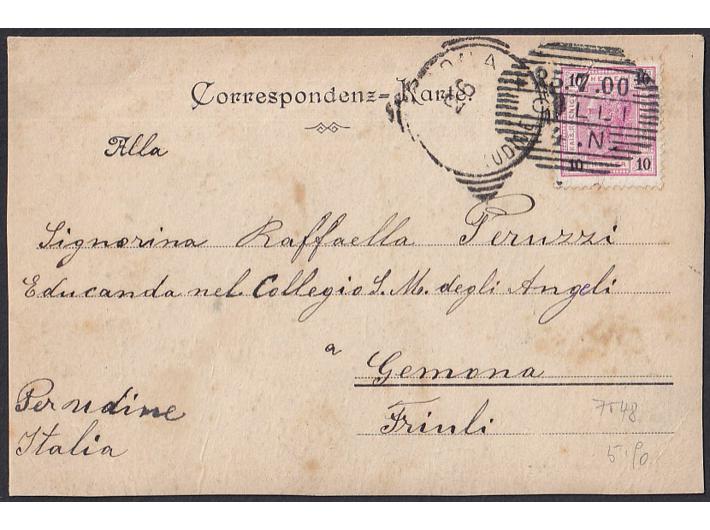 Correspondenz-Karte.
10 10
25.7.00
10 10
Alla
Signorina Raffaella Peruzzi
Educanda nel Collegio S. M. degli Angeli
a
Gemona
Per Udine
Friuli
Italia
7548